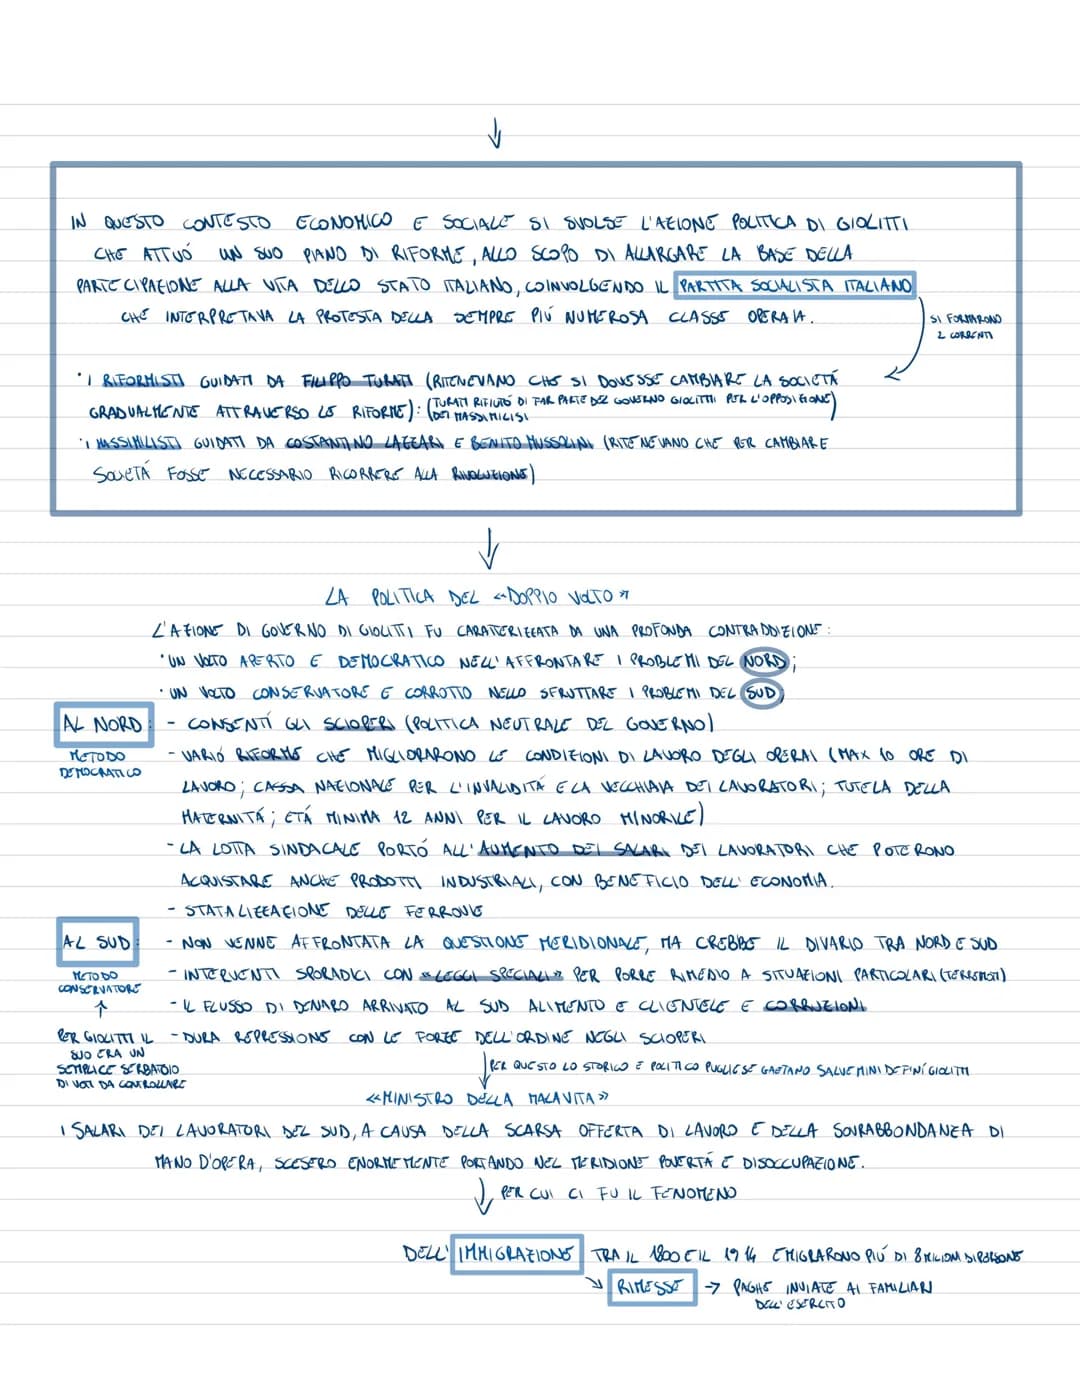 ↓
IN QUESTO CONTESTO ECONOMICO E SOCIALE SI SVOLSE L'AZIONE POLITICA DI GIOLITTI
CHE ATTUÓ UN SUO PIANO DI RIFORME, ALLO SCOPO DI ALLARGARE LA BASE DELLA
PARTECIPAZIONE ALLA VITA DELLO STATO ITALIANO, COINVOLGENDO IL PARTITA SOCIALISTA ITALIANO
CHE INTERPRETAVA LA PROTESTA DELLA SEMPRE PIÚ NUMEROSA CLASSE OPERAIA.
SI FORMARONO
2 CORRENTI
• I RIFORMISTI GUIDATI DA FILIPPO TURATI (RITENEVANO CHE SI DOVESSE CAMBIARE LA SOCIETÁ
GRADUALMENTE ATTRAVERSO LE RIFORME): (TURATI RIFIUTÓ DI FAR PARTE DEL GOVERNO GIOLITTI PER L'OPPOSIZIONE)
DEI MASSIMILISI
• I MASSIMILISTI GUIDATI DA COSTANTINO LAZZARI E BENITO MUSSOLINI (RITENEVANO CHE PER CAMBIARE
SOCIETÁ FOSSE NECESSARIO RICORRERE ALLA RIVOLUZIONE)
↓
LA POLITICA DEL «DOPPIO VOLTO»
L'AZIONE DI GOVERNO DI GIOLITTI FU CARATTERIZZATA DA UNA PROFONDA CONTRADDIZIONE:
• UN VOLTO APERTO E DEMOCRATICO NELL'AFFRONTARE I PROBLEMI DEL NORD;
• UN VOLTO CONSERVATORE E CORROTTO NELLO SFRUTTARE I PROBLEMI DEL SUD;
AL NORD: - CONSENTÍ GLI SCIOPERI (POLITICA NEUTRALE DEL GOVERNO)
METODO
DEMOCRATICO
- VARIÓ RIFORME CHE MIGLIORARONO LE CONDIZIONI DI LAVORO DEGLI OPERAI (MAX 10 ORE DI
LAVORO; CASSA NAZIONALE PER L'INVALIDITÁ E LA VECCHIAIA DEI LAVORATORI; TUTELA DELLA
MATERNITÁ; ETÁ MINIMA 12 ANNI PER IL LAVORO MINORILE)
- LA LOTTA SINDACALE PORTÓ ALL'AUMENTO DEI SALARI DEI LAVORATORI CHE POTERONO
ACQUISTARE ANCHE PRODOTTI INDUSTRIALI, CON BENEFICIO DELL'ECONOMIA.
- STATALIZZAZIONE DELLE FERROVIE
AL SUD: - NON VENNE AFFRONTATA LA QUESTIONE MERIDIONALE, MA CREBBE IL DIVARIO TRA NORD E SUD
METODO
CONSERVATORE
↑
PER GIOLITTI IL
SUD ERA UN
SEMPLICE SERBATOIO
DI VOTI DA CONTROLLARE
- INTERVENTI SPORADICI CON «LEGGI SPECIALI» PER PORRE RIMEDIO A SITUAZIONI PARTICOLARI (TERREMOTI)
- IL FLUSSO DI DENARO ARRIVATO AL SUD ALIMENTO E CLIENTELE E CORRUZIONI
- DURA REPRESSIONE CON LE FORZE DELL'ORDINE NEGLI SCIOPERI
↓ PER QUESTO LO STORICO E POLITICO PUGLIESE GAETANO SALVEMINI DEFINÍ GIOLITTI
«MINISTRO DELLA MALAVITA»
I SALARI DEI LAVORATORI DEL SUD, A CAUSA DELLA SCARSA OFFERTA DI LAVORO E DELLA SOVRABBONDANZA DI
MANO D'OPERA, SCESERO ENORMEMENTE PORTANDO NEL MERIDIONE POVERTÁ E DISOCCUPAZIONE.
↓ PER CUI CI FU IL FENOMENO
DELL'IMMIGRAZIONE TRA IL 1800 E IL 1914 EMIGRARONO PIÚ DI 8 MILIONI DI PERSONE
RIMESSE → PAGHE INVIATE AI FAMILIARI
DELL'ESERCITO